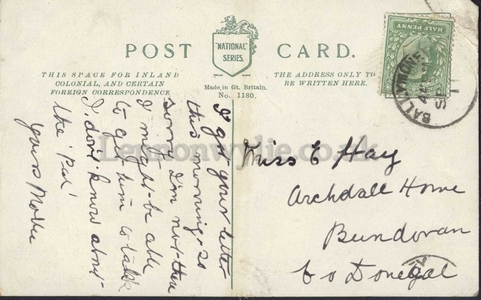 POST CARD.
"NATIONAL" SERIES.
THIS SPACE FOR INLAND
COLONIAL, AND CERTAIN
FOREIGN CORRESPONDENCE
Made in Gt. Britain.
No. 1180.
THE ADDRESS ONLY TO
BE WRITTEN HERE.
HALF PENNY
I got your letter
this morning. so
sorry I'm not there
I might be able
to get him to take
I don't know about
the 'Pad'
yours Mollie
Miss E Hay
Archdall Home
Bundoran
Co Donegal
Lennonwylie.co.uk